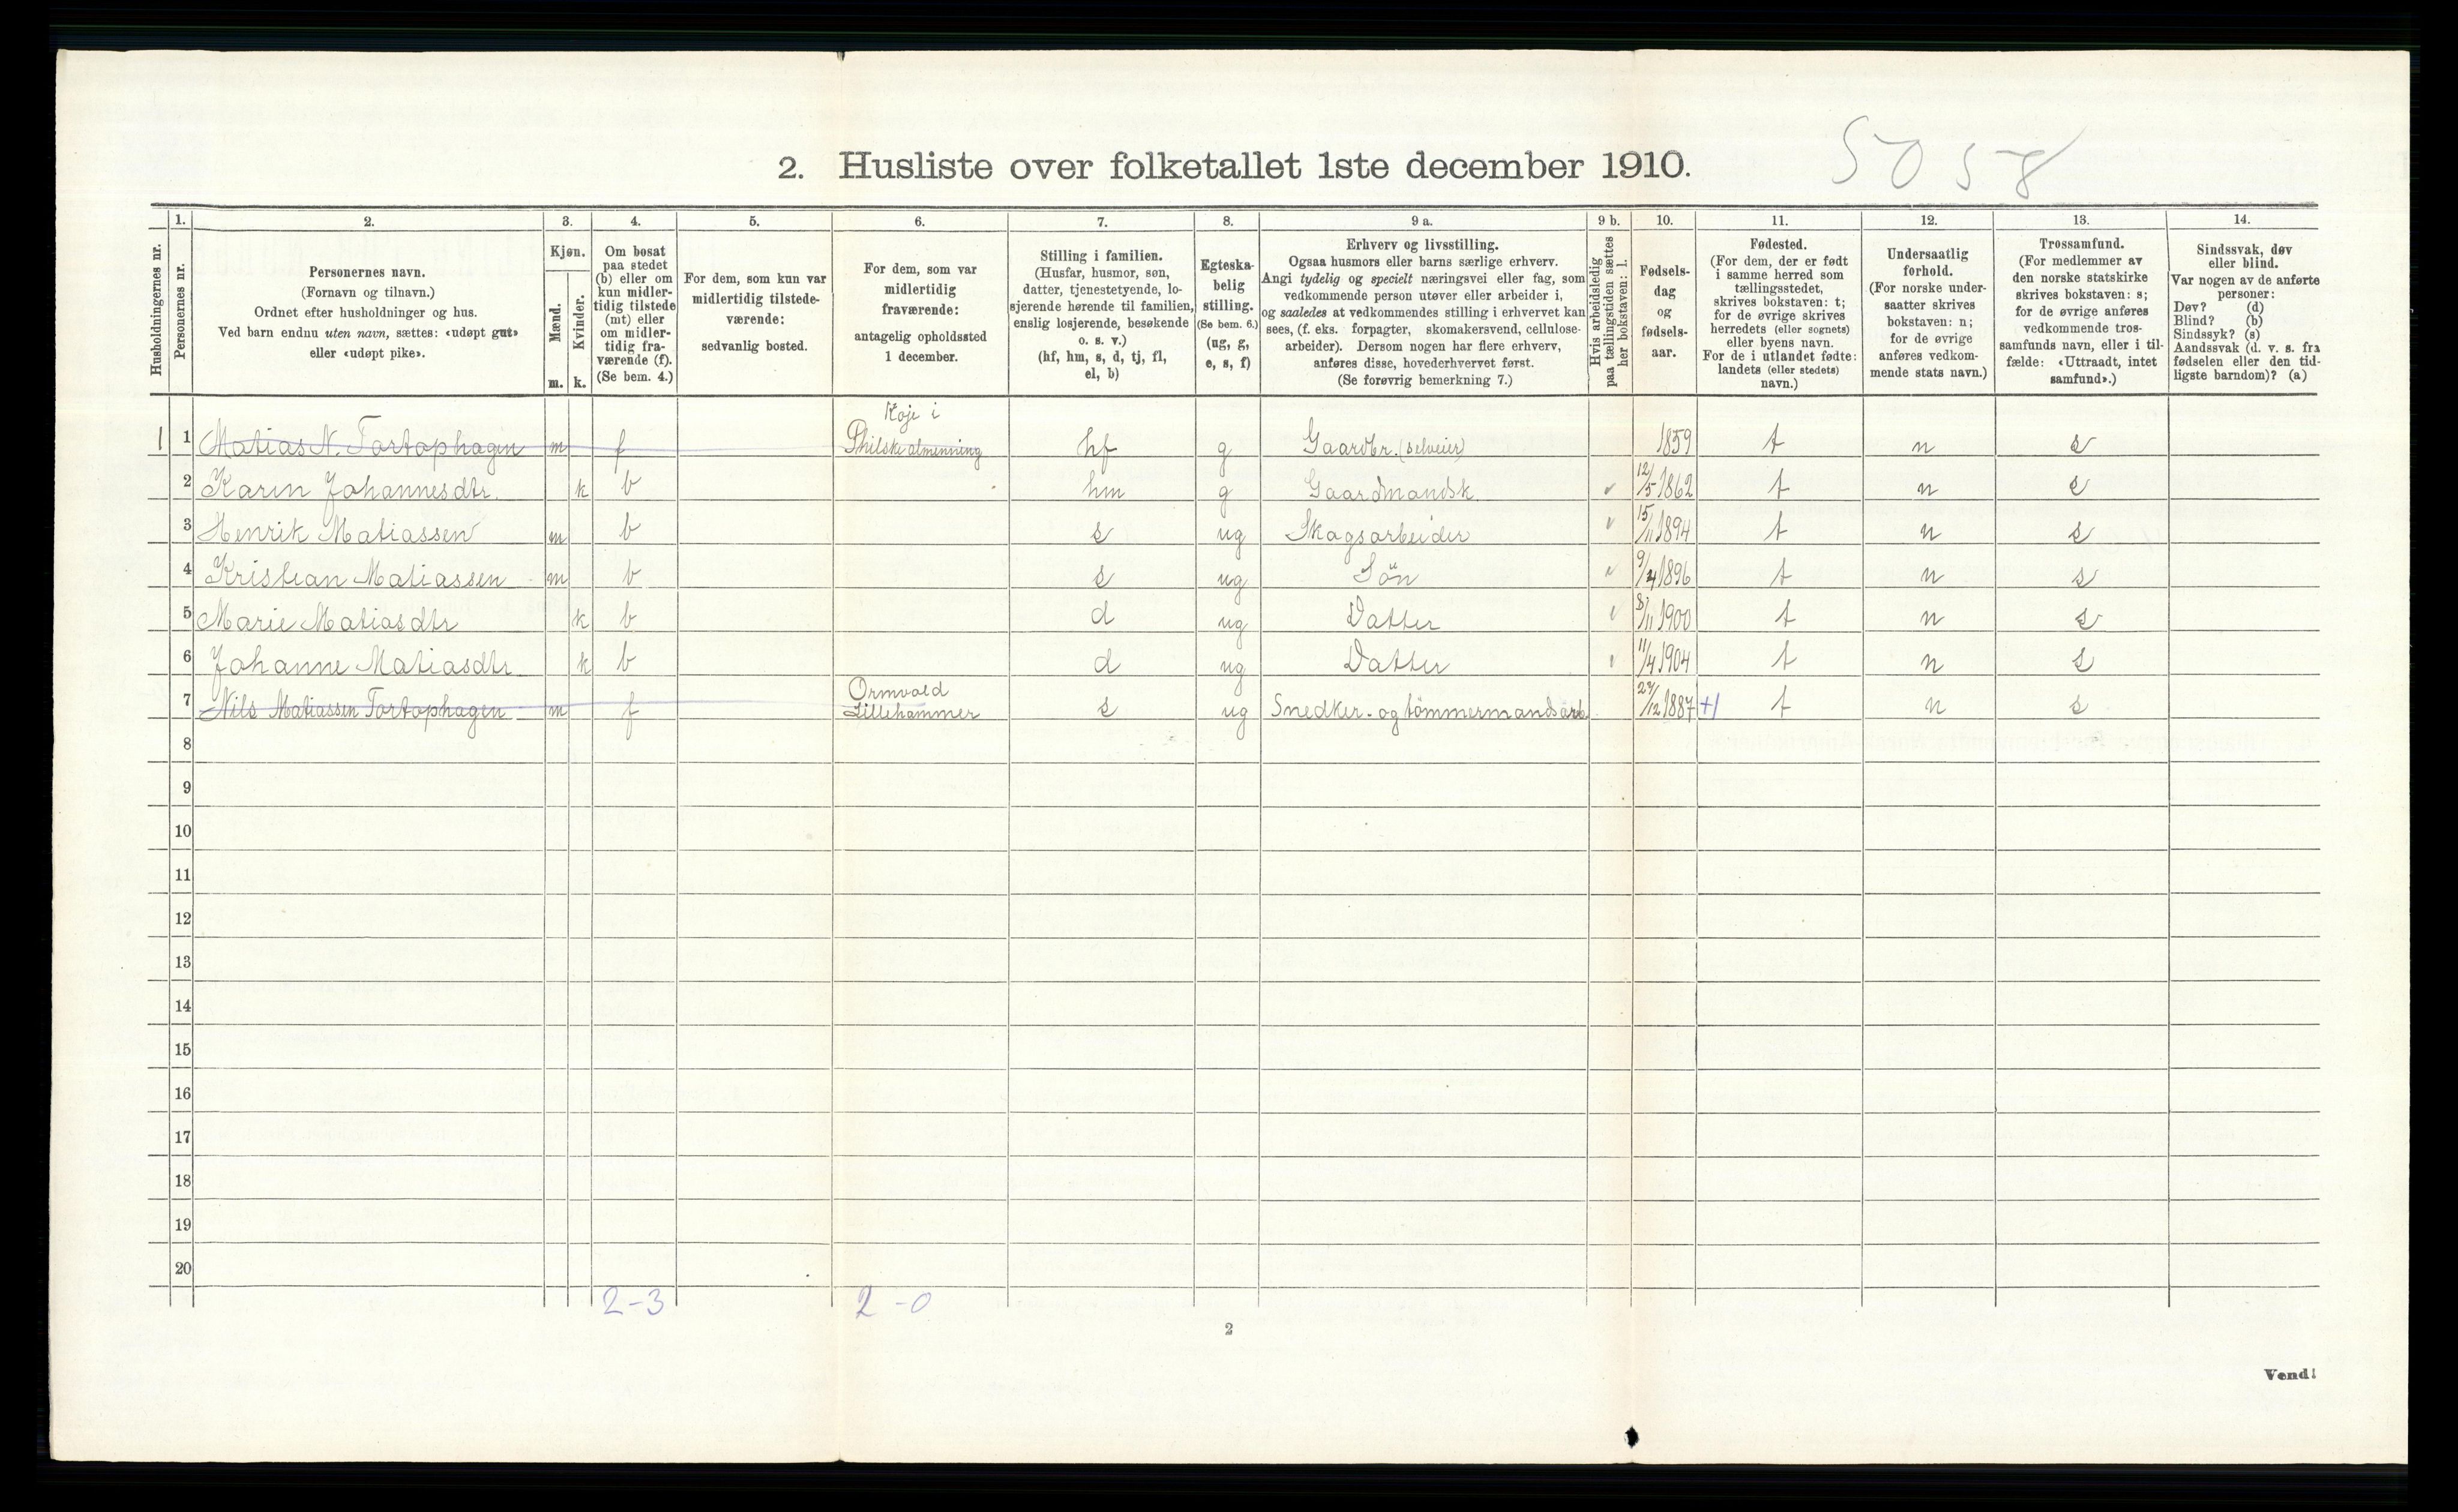 5058
2. Husliste over folketallet 1ste december 1910.
Husholdningernes nr.
1.
Personernes nr.
2.
Personernes navn.
(Fornavn og tilnavn.)
Ordnet efter husholdninger og hus.
Ved barn endnu uten navn, sættes: «udøpt gut»
eller «udøpt pike».
3.
Kjøn.
Mænd.
m.
Kvinder.
k.
4.
Om bosat
paa stedet
(b) eller om
kun midler-
tidig tilstede
(mt) eller
om midler-
tidig fra-
værende (f).
(Se bem. 4.)
5.
For dem, som kun var
midlertidig tilstede-
værende:
sedvanlig bosted.
6.
For dem, som var
midlertidig
fraværende:
antagelig opholdssted
1 december.
7.
Stilling i familien.
(Husfar, husmor, søn,
datter, tjenestetyende, lo-
sjerende hørende til familien,
enslig losjerende, besøkende
o. s. v.)
(hf, hm, s, d, tj, fl,
el, b)
8.
Egteska-
belig
stilling.
(Se bem. 6.)
(ug, g,
e, s, f)
9 a.
Erhverv og livsstilling.
Ogsaa husmors eller barns særlige erhverv.
Angi tydelig og specielt næringsvei eller fag, som
vedkommende person utøver eller arbeider i,
og saaledes at vedkommendes stilling i erhvervet kan
sees, (f. eks. forpagter, skomakersvend, cellulose-
arbeider). Dersom nogen har flere erhverv,
anføres disse, hovederhvervet først.
(Se forøvrig bemerkning 7.)
9 b.
Hvis arbeidsledig
paa tællingstiden sættes
her bokstaven: l.
10.
Fødsels-
dag
og
fødsels-
aar.
11.
Fødested.
(For dem, der er født
i samme herred som
tællingsstedet,
skrives bokstaven: t;
for de øvrige skrives
herredets (eller sognets)
eller byens navn.
For de i utlandet fødte:
landets (eller stedets)
navn.)
12.
Undersaatlig
forhold.
(For norske under-
saatter skrives
bokstaven: n;
for de øvrige
anføres vedkom-
mende stats navn.)
13.
Trossamfund.
(For medlemmer av
den norske statskirke
skrives bokstaven: s;
for de øvrige anføres
vedkommende tros-
samfunds navn, eller i til-
fælde: «Uttraadt, intet
samfund».)
14.
Sindssvak, døv
eller blind.
Var nogen av de anførte
personer:
Døv? (d)
Blind? (b)
Sindssyk? (s)
Aandssvak (d. v. s. fra
fødselen eller den tid-
ligste barndom)? (a)
1 1 Matias N. Tortophagen m f Koje i almenning hf g Gaardbr. (selveier) 1859 t n s
2 Karin Johannesdtr. k b hm g Gaardmandsk. 12/5 1862 t n s
3 Henrik Matiassen m b s ug Skogsarbeider 15/11 1894 t n s
4 Kristian Matiassen m b s ug Sön 9/4 1896 t n s
5 Marie Matiasdtr k b d ug Datter 8/11 1900 t n s
6 Johanne Matiasdtr k b d ug Datter 11/4 1904 t n s
7 Nils Matiassen Tortophagen m f Lillehammer s ug Snedker- og tömmermandsarb. 27/12 1887 +1 t n s
8
9
10
11
12
13
14
15
16
17
18
19
20
2-3 2-0
2
Vend!